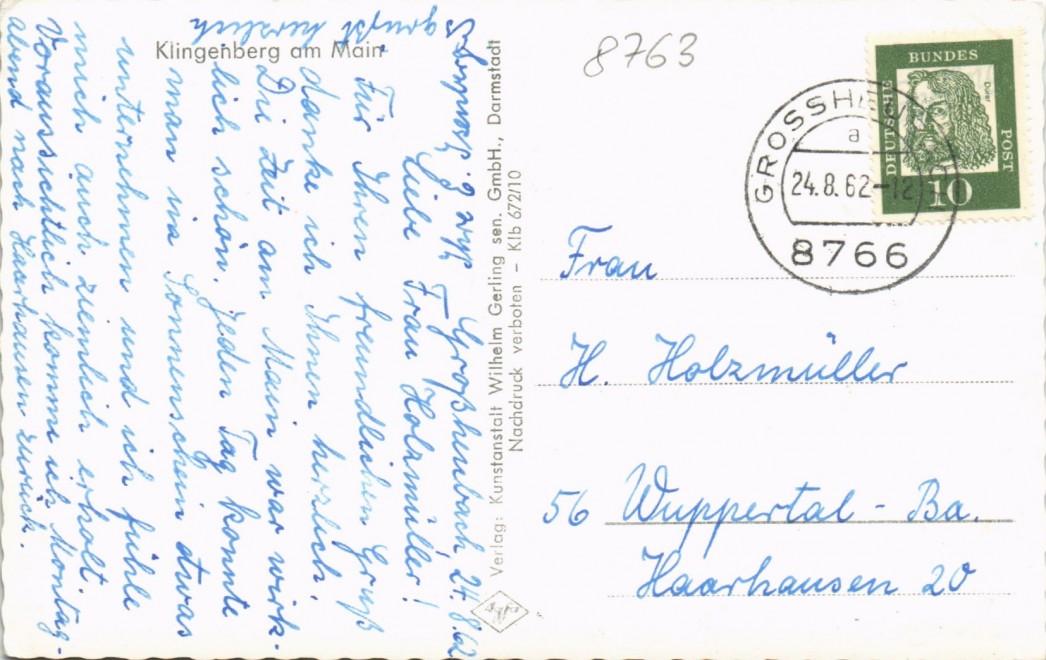 Klingenberg am Main
Großheubach 24.8.62
Liebe Frau Holzmüller!
Für Ihren freundlichen Gruß
danke ich Ihnen herzlich.
Die Zeit am Main war wirk-
lich schön. Jeden Tag konnte
man im Sonnenschein etwas
unternehmen und ich fühle
mich auch ziemlich erholt.
Voraussichtlich komme ich Montag-
abend nach Haarhausen zurück.
grüßt herzlich
Verlag: Kunstanstalt Wilhelm Gerling sen. GmbH., Darmstadt
Nachdruck verboten – Klb 672/10
Agfa
8763
DEUTSCHE
BUNDES
POST
Dürer
10
GROSSHEU
a
24.8.62-12
8766
Frau
H. Holzmüller
56 Wuppertal - Ba.
Haarhausen 20